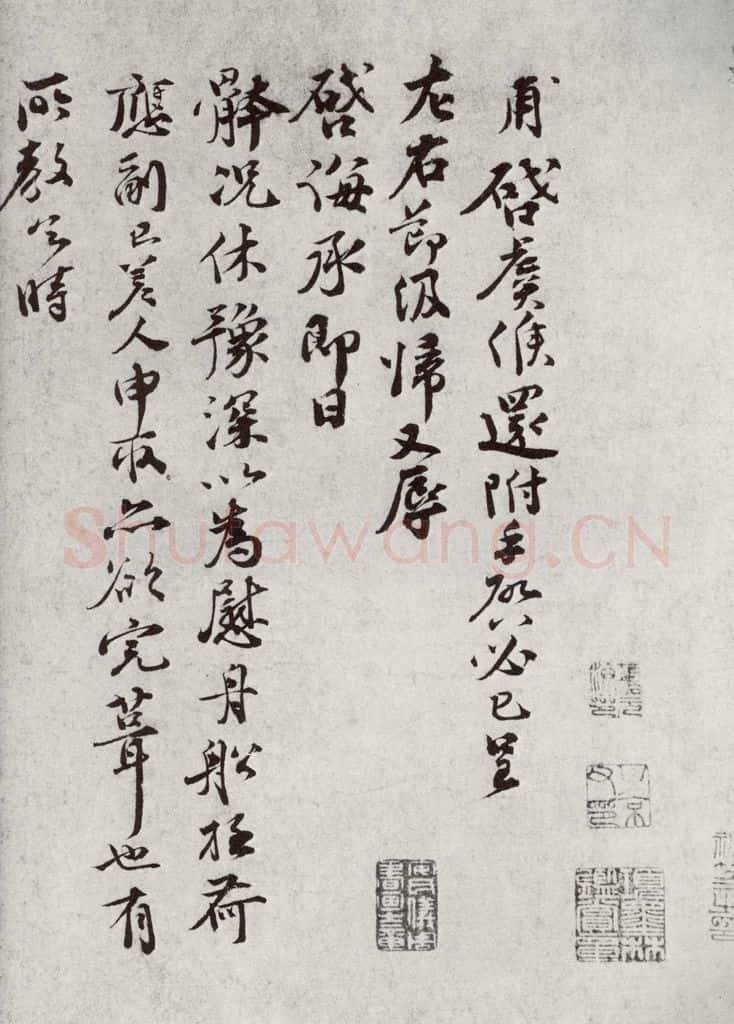 甫啓虞候還附手啓必已呈
左右節級歸又辱
啓誨承即日
體況休豫深以為慰舟船極荷
應副已差人申取亦欲完葺也有
所教令時
Shufawang.CN